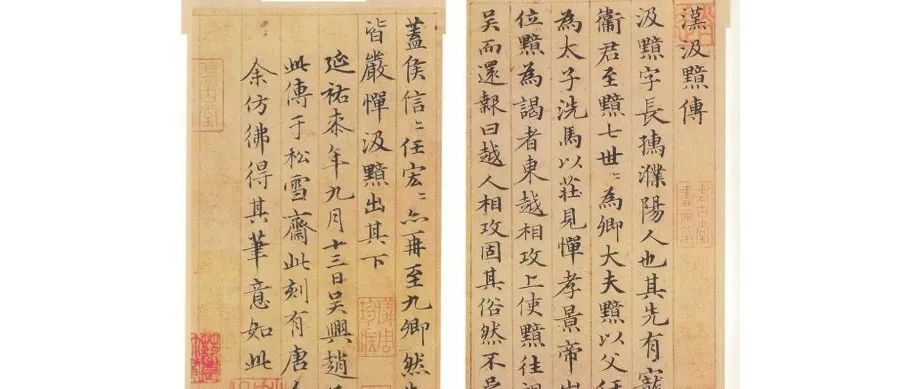 漢汲黯傳
汲黯字長孺濮陽人也其先有寵
衛君至黯七世〻為卿大夫黯以父任
為太子洗馬以莊見憚孝景帝
位黯為謁者東越相攻上使黯往
吳而還報曰越人相攻固其俗然不
蓋侯信〻任宏〻亦再至九卿然
皆嚴憚汲黯出其下
延祐柒年九月十三日吳興趙
此傳于松雪齋此刻有唐
余仿彿得其筆意如此